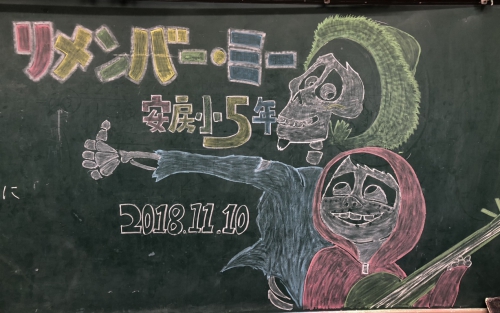 リメンバー・ミー
安房小5年
2018.11.10
に